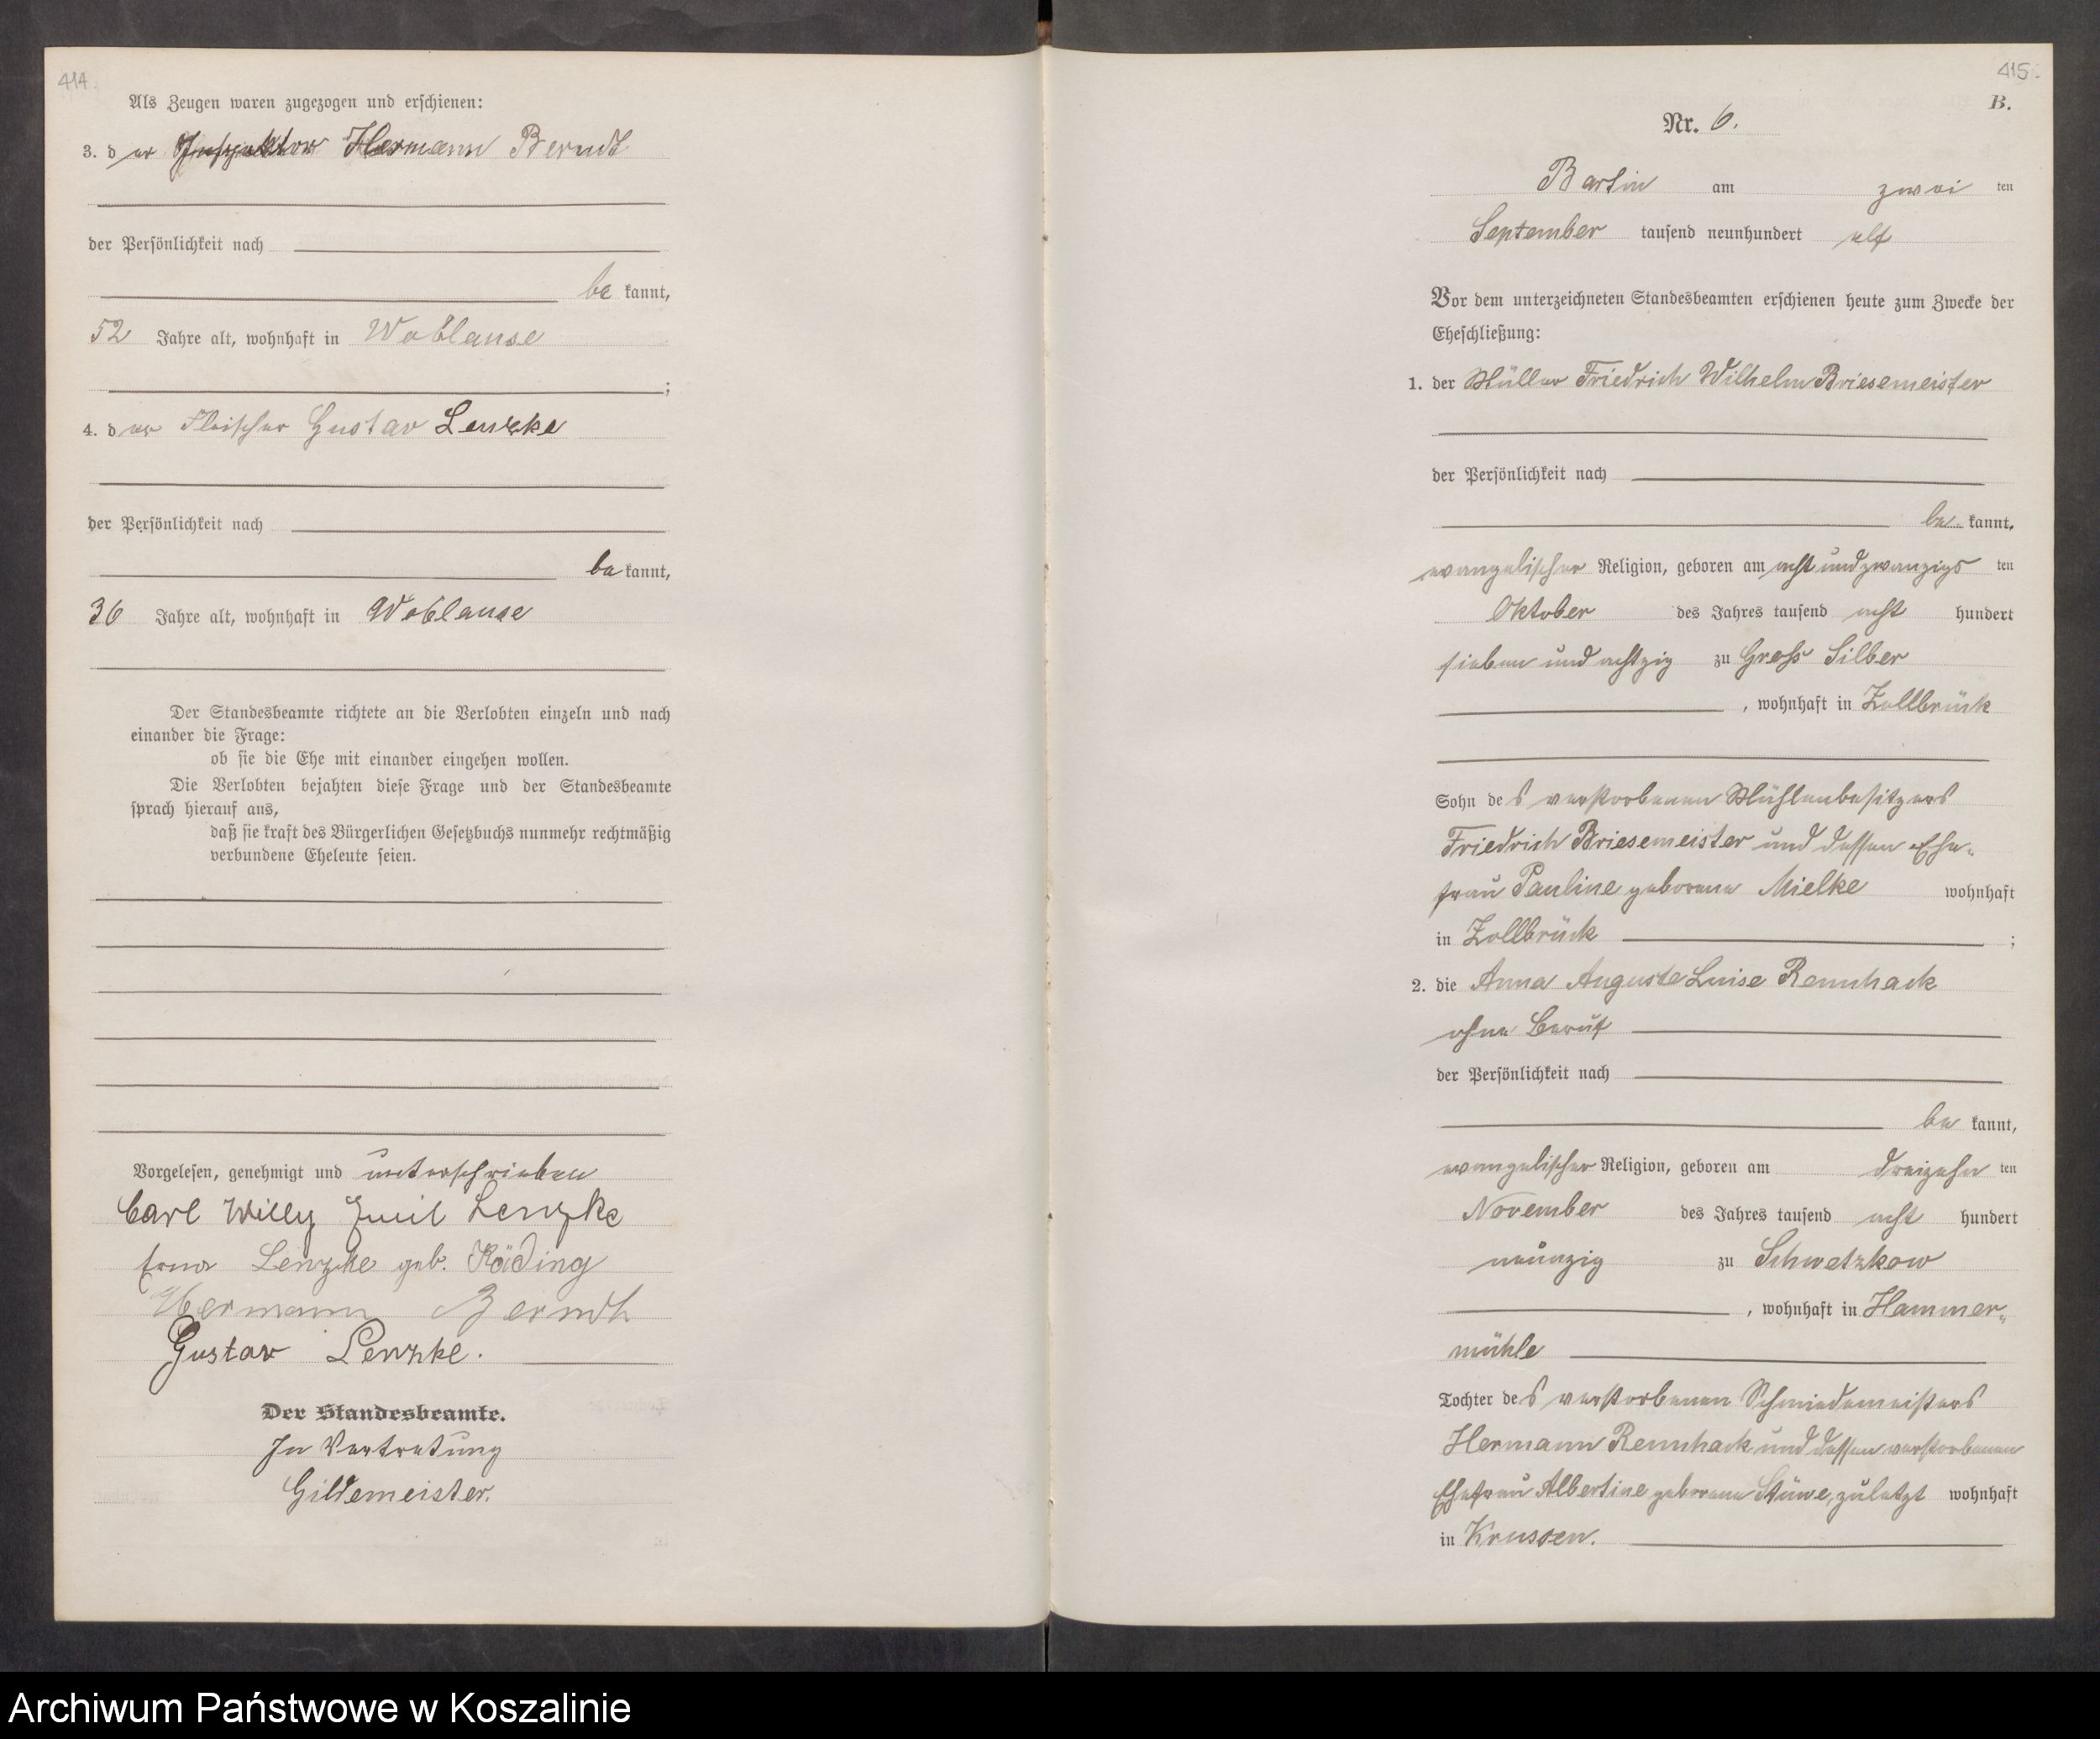 414.
Als Zeugen waren zugezogen und erschienen:
3. der Inspektor Hermann Berndt
der Persönlichkeit nach
be kannt,
52 Jahre alt, wohnhaft in Woblanse
;
4. der Fleischer Gustav Lenzke
der Persönlichkeit nach
be kannt,
36 Jahre alt, wohnhaft in Woblanse
Der Standesbeamte richtete an die Verlobten einzeln und nach
einander die Frage:
ob sie die Ehe mit einander eingehen wollen.
Die Verlobten bejahten diese Frage und der Standesbeamte
sprach hierauf aus,
daß sie kraft des Bürgerlichen Gesetzbuchs nunmehr rechtmäßig
verbundene Eheleute seien.
Vorgelesen, genehmigt und unterschrieben
Carl Willy Emil Lenzke
Erna Lenzke geb. Käding
Hermann Berndt
Gustav Lenzke.
Der Standesbeamte.
In Vertretung
Gildemeister.
415.
B.
Nr. 6.
Bartin am zwei ten
September tausend neunhundert elf
Vor dem unterzeichneten Standesbeamten erschienen heute zum Zwecke der
Eheschließung:
1. der Müller Friedrich Wilhelm Briesemeister
der Persönlichkeit nach
be kannt,
evangelischer Religion, geboren am acht und zwanzigs ten
Oktober des Jahres tausend acht hundert
sieben und achtzig zu Groß Silber
, wohnhaft in Zollbrück
Sohn des verstorbenen Mühlenbesitzers
Friedrich Briesemeister und dessen Ehe-
frau Pauline geborene Mielke wohnhaft
in Zollbrück ;
2. die Anna Auguste Luise Rennhack
ohne Beruf
der Persönlichkeit nach
be kannt,
evangelischer Religion, geboren am dreizehn ten
November des Jahres tausend acht hundert
neunzig zu Schwetzkow
, wohnhaft in Hammer-
mühle
Tochter des verstorbenen Schmiedemeisters
Hermann Rennhack und dessen verstorbenen
Ehefrau Albertine geborene Stüwe, zuletzt wohnhaft
in Krussen.
Archiwum Państwowe w Koszalinie